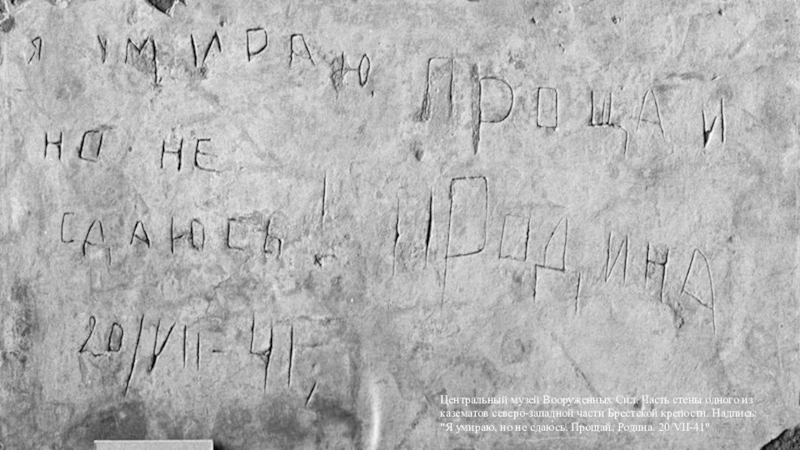 Я УМИРАЮ,
НО НЕ
СДАЮСЬ!
20/VII-41,
ПРОЩАЙ
РОДИНА
Центральный музей Вооруженных Сил. Часть стены одного из
казематов северо-западной части Брестской крепости. Надпись:
"Я умираю, но не сдаюсь! Прощай, Родина. 20/VII-41"